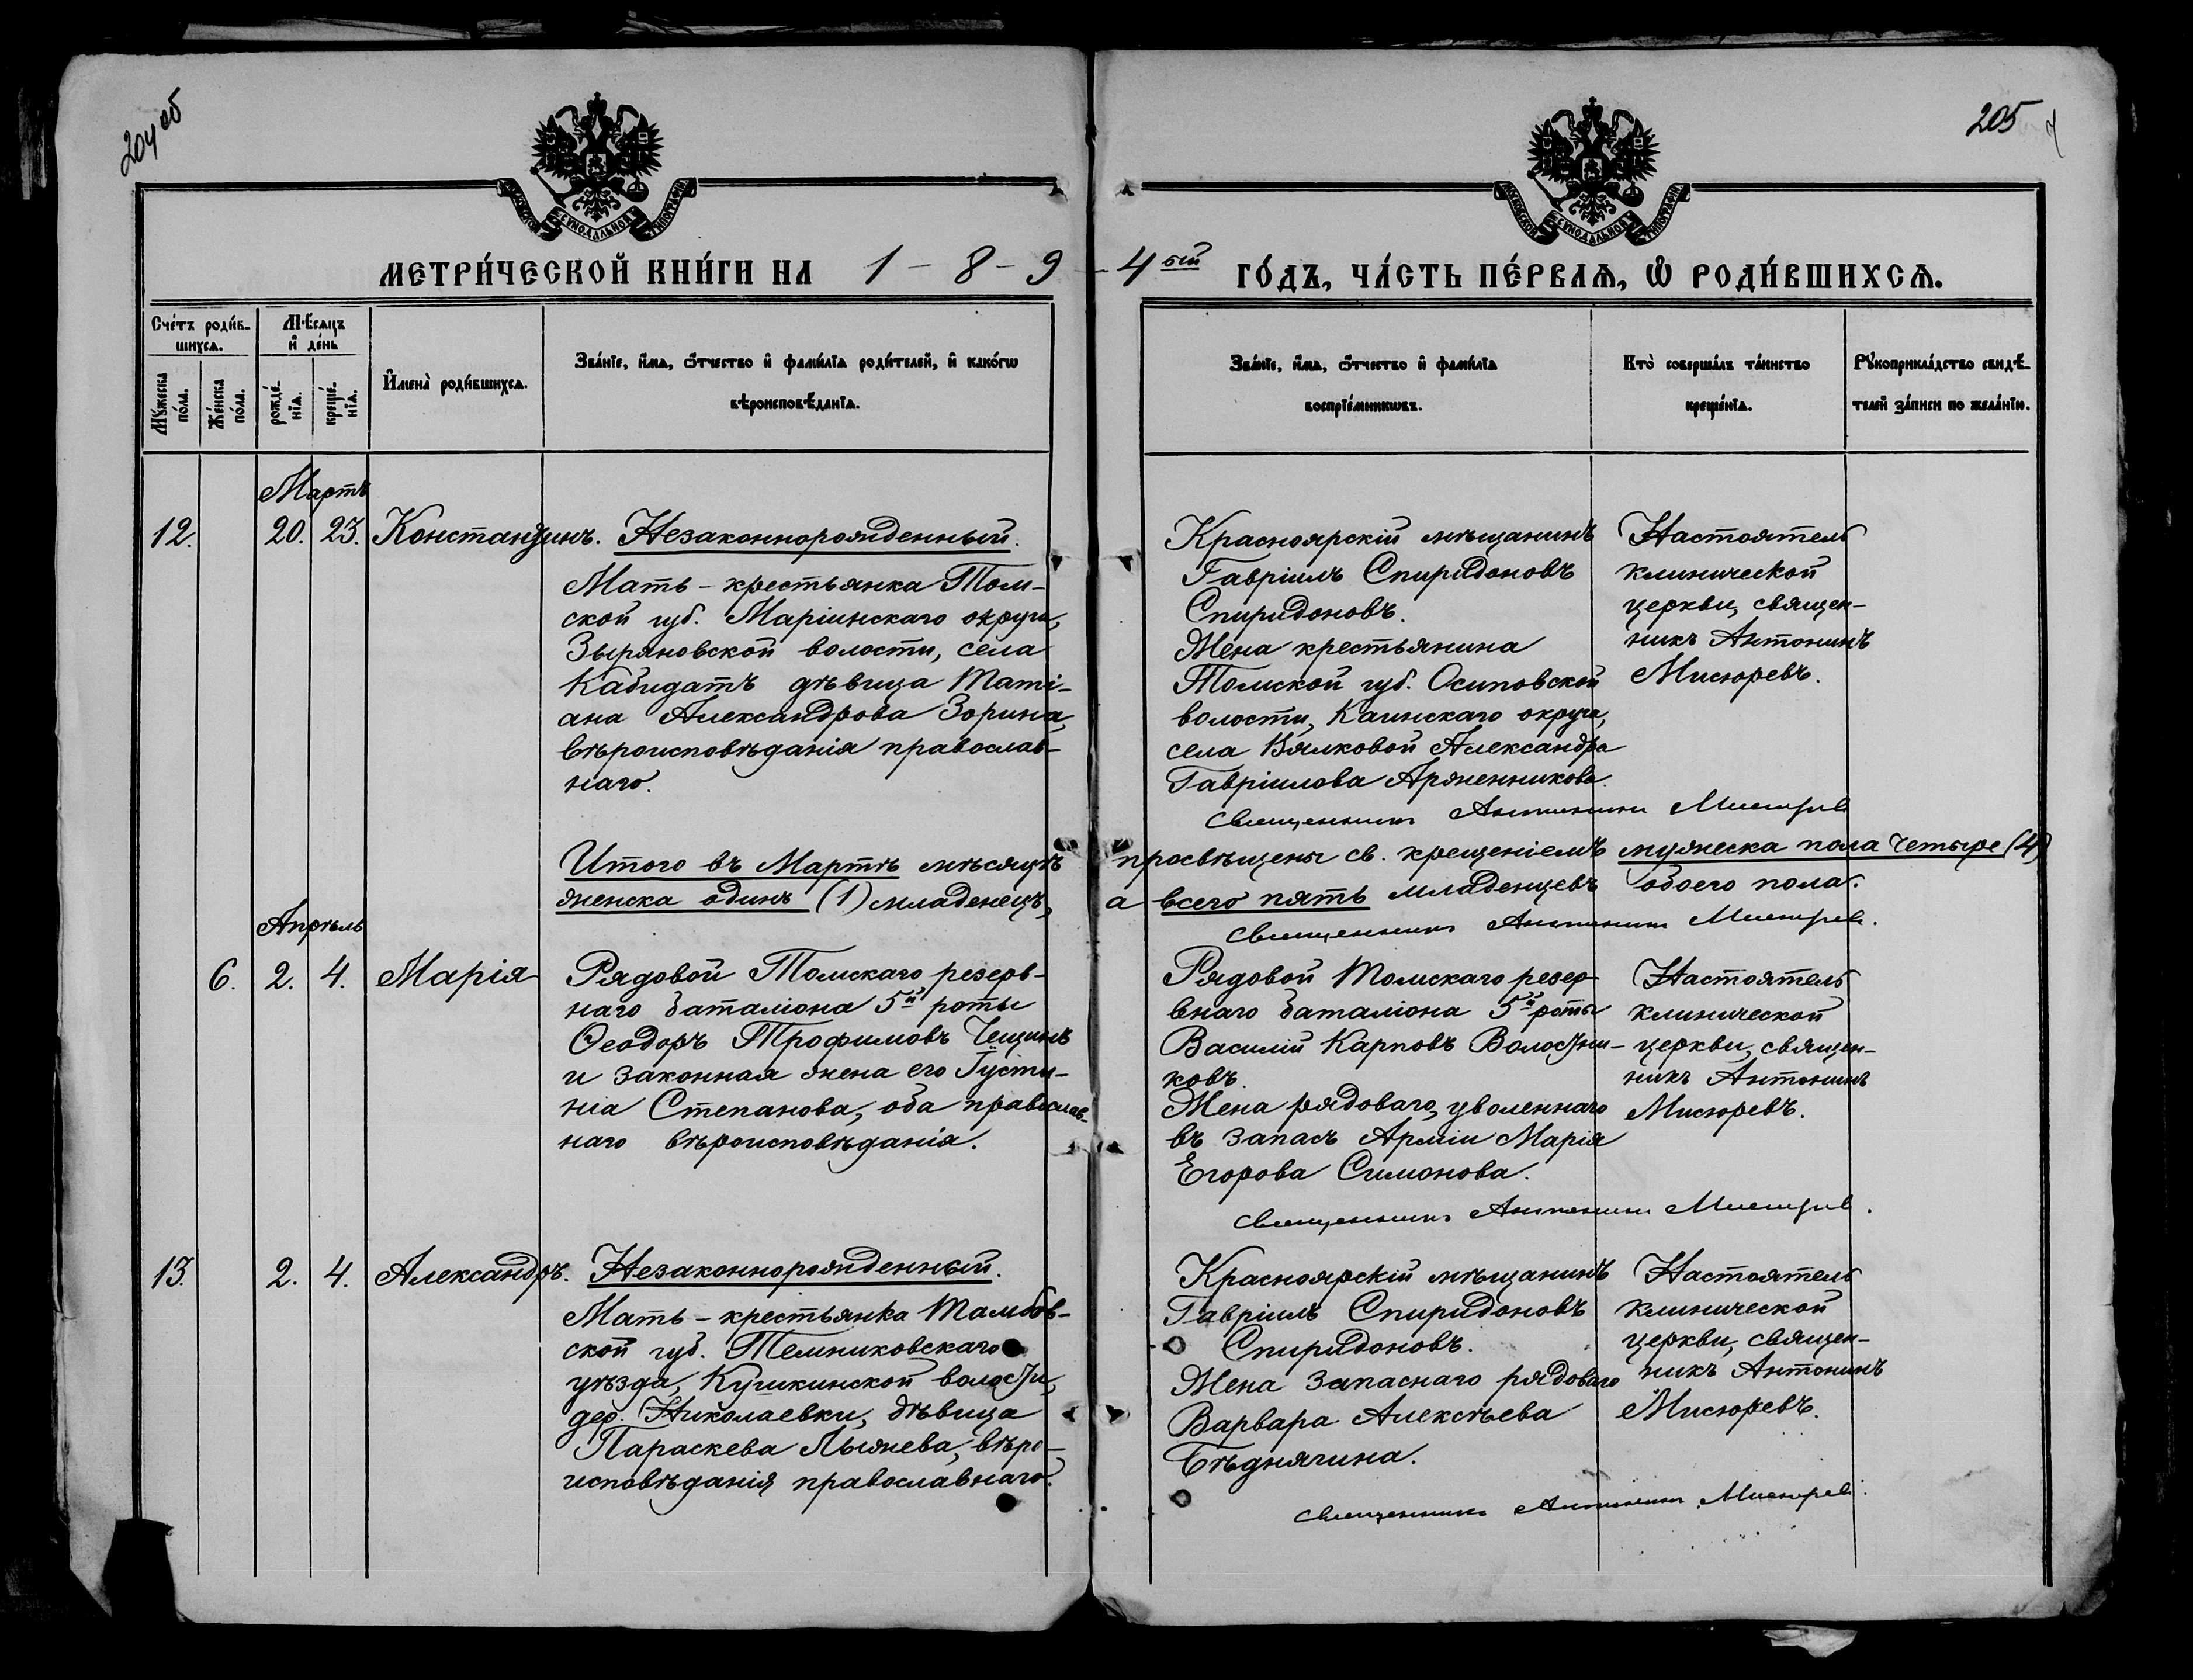 204 об
205
МОСКОВСКОЙ СѴНОДАЛЬНОЙ ТИПОГРАФІИ
МОСКОВСКОЙ СѴНОДАЛЬНОЙ ТИПОГРАФІИ
МЕТРИ́ЧЕСКОЙ КНИ́ГИ НА 1-8-9-4ый ГО́ДЪ, ЧА́СТЬ ПЕ́РВАѦ, Ѡ҆ РОДИ́ВШИХСѦ.
Сче́тъ роди́в-
шихсѧ.
Мѣ́сѧцъ
и҆ де́нь
Мꙋ́жеска
по́ла.
Же́нска
по́ла.
рожде́-
нїѧ.
креще́-
нїѧ.
И҆мена̀ роди́вшихсѧ.
Зва́нїе, и҆́мѧ, ѻ҆́тчество и҆ фами́лїѧ роди́телей, и҆ како́гѡ
вѣроисповѣ́данїѧ.
Зва́нїе, и҆́мѧ, ѻ҆́тчество и҆ фами́лїѧ
воспрїе́мникѡвъ.
Кто̀ соверша́лъ та́инство
креще́нїѧ.
Рꙋкоприкла́дство свидѣ́-
телей за́писи по жела́нїю.
Мартъ
12. 20. 23. Константинъ. Незаконнорожденный.
Мать - крестьянка Том-
ской губ. Маріинскаго округа,
Зыряновской волости, села
Кабидатъ дѣвица Тати-
ана Александрова Зорина,
вѣроисповѣданія православ-
наго.
Красноярскій мѣщанинъ
Гавріилъ Спиридоновъ
Спиридоновъ.
Жена крестьянина
Томской губ. Осиповской
волости, Каинскаго округа,
села Вялковой Александра
Гавріилова Аряженникова.
Настоятель
клинической
церкви, священ-
никъ Антонинъ
Мисюревъ.
Священникъ Антонинъ Мисюревъ
Итого въ Мартѣ мѣсяцѣ просвѣщены св. крещеніемъ мужеска пола четыре (4)
женска одинъ (1) младенецъ, а всего пять младенцевъ обоего пола.
Священникъ Антонинъ Мисюревъ.
Апрѣль
6. 2. 4. Марія
Рядовой Томскаго резерв-
наго баталіона 5й роты
Ѳеодоръ Трофимовъ Чещинъ
и законная жена его Густи-
нія Степанова, оба православ-
наго вѣроисповѣданія.
Рядовой Томскаго резер-
внаго баталіона 5й роты
Василій Карповъ Волостни-
ковъ.
Жена рядоваго, уволеннаго
въ запасъ Арміи Марія
Егорова Симонова.
Настоятель
клинической
церкви, священ-
никъ Антонинъ
Мисюревъ.
Священникъ Антонинъ Мисюревъ.
13. 2. 4. Александръ. Незаконнорожденный.
Мать - крестьянка Тамбов-
ской губ. Темниковскаго
уѣзда, Кушкинской волости,
дер. Николаевки, дѣвица
Параскева Лыжева, вѣро-
исповѣданія православнаго.
Красноярскій мѣщанинъ
Гавріилъ Спиридоновъ
Спиридоновъ.
Жена запаснаго рядоваго
Варвара Алексѣева
Бѣднягина.
Настоятель
клинической
церкви, священ-
никъ Антонинъ
Мисюревъ.
Священникъ Антонинъ Мисюревъ.